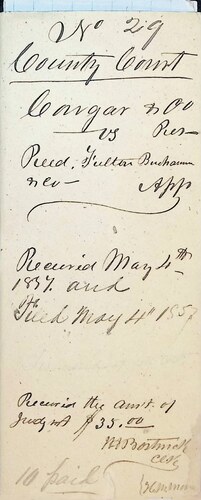 No 29
County Court
Cougar & Co
vs
Reed, Fulton Buchanan
& co - App
Received May 4th
1857. and
Filed May 4th 1857
Received the amt. of
Judgmt $35.00
Clk
10 paid